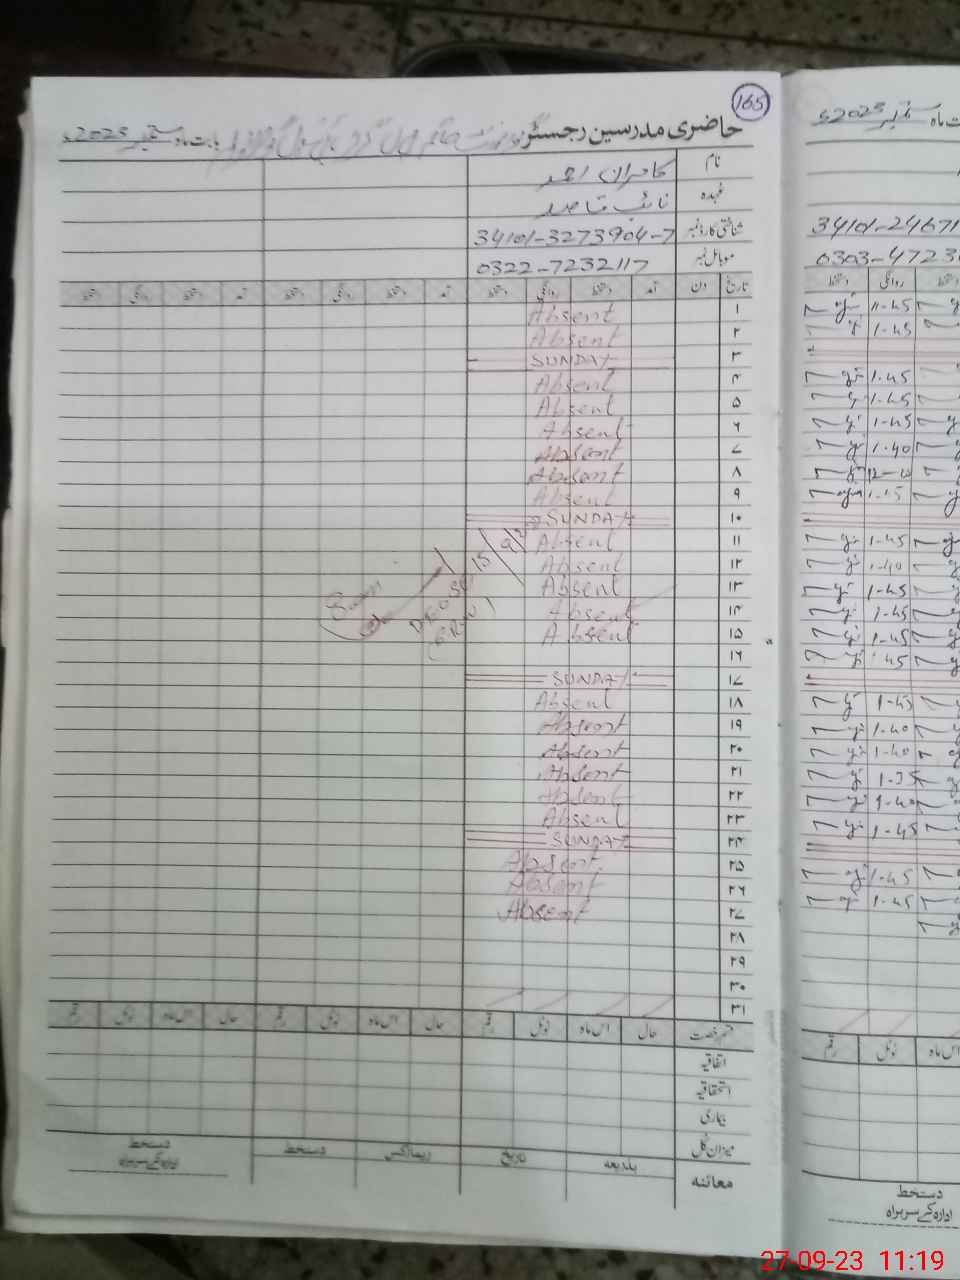 165
حاضری مدرسین رجسٹر بابت ماہ ستمبر 2023ء
نام کامران احمد
عہدہ نائب قاصد
شناختی کارڈ نمبر 34101-3273904-7
موبائل نمبر 0322-7232117
تاریخ دن آمد دستخط روانگی دستخط آمد دستخط روانگی دستخط آمد دستخط روانگی دستخط
۱ Absent
۲ Absent
۳ SUNDAY
۴ Absent
۵ Absent
۶ Absent
۷ Absent
۸ Absent
۹ Absent
۱۰ SUNDAY
۱۱ Absent
۱۲ Absent
۱۳ Absent
۱۴ Absent
۱۵ Absent
۱۶
۱۷ SUNDAY
۱۸ Absent
۱۹ Absent
۲۰ Absent
۲۱ Absent
۲۲ Absent
۲۳ Absent
۲۴ SUNDAY
۲۵ Absent
۲۶ Absent
۲۷ Absent
۲۸
۲۹
۳۰
۳۱
قسم رخصت حال اس ماہ ٹوٹل رقم حال اس ماہ ٹوٹل رقم حال اس ماہ ٹوٹل رقم
اتفاقیہ
استحقاقیہ
بیماری
میزان کل
معائنہ بذریعہ تاریخ ریمارکس دستخط دستخط
ادارہ کے سربراہ
ماہ ستمبر 2023ء
34101-24671
0303-4723
دستخط روانگی دستخط
11-45
1-45
1-45
1-45
1-45
1-40
12-10
1-15
1-45
1-40
1-45
1-45
1-45
1-45
1-45
1-40
1-40
1-35
1-40
1-45
1-45
1-45
رقم ٹوٹل اس ماہ
دستخط
ادارہ کے سربراہ
27-09-23 11:19